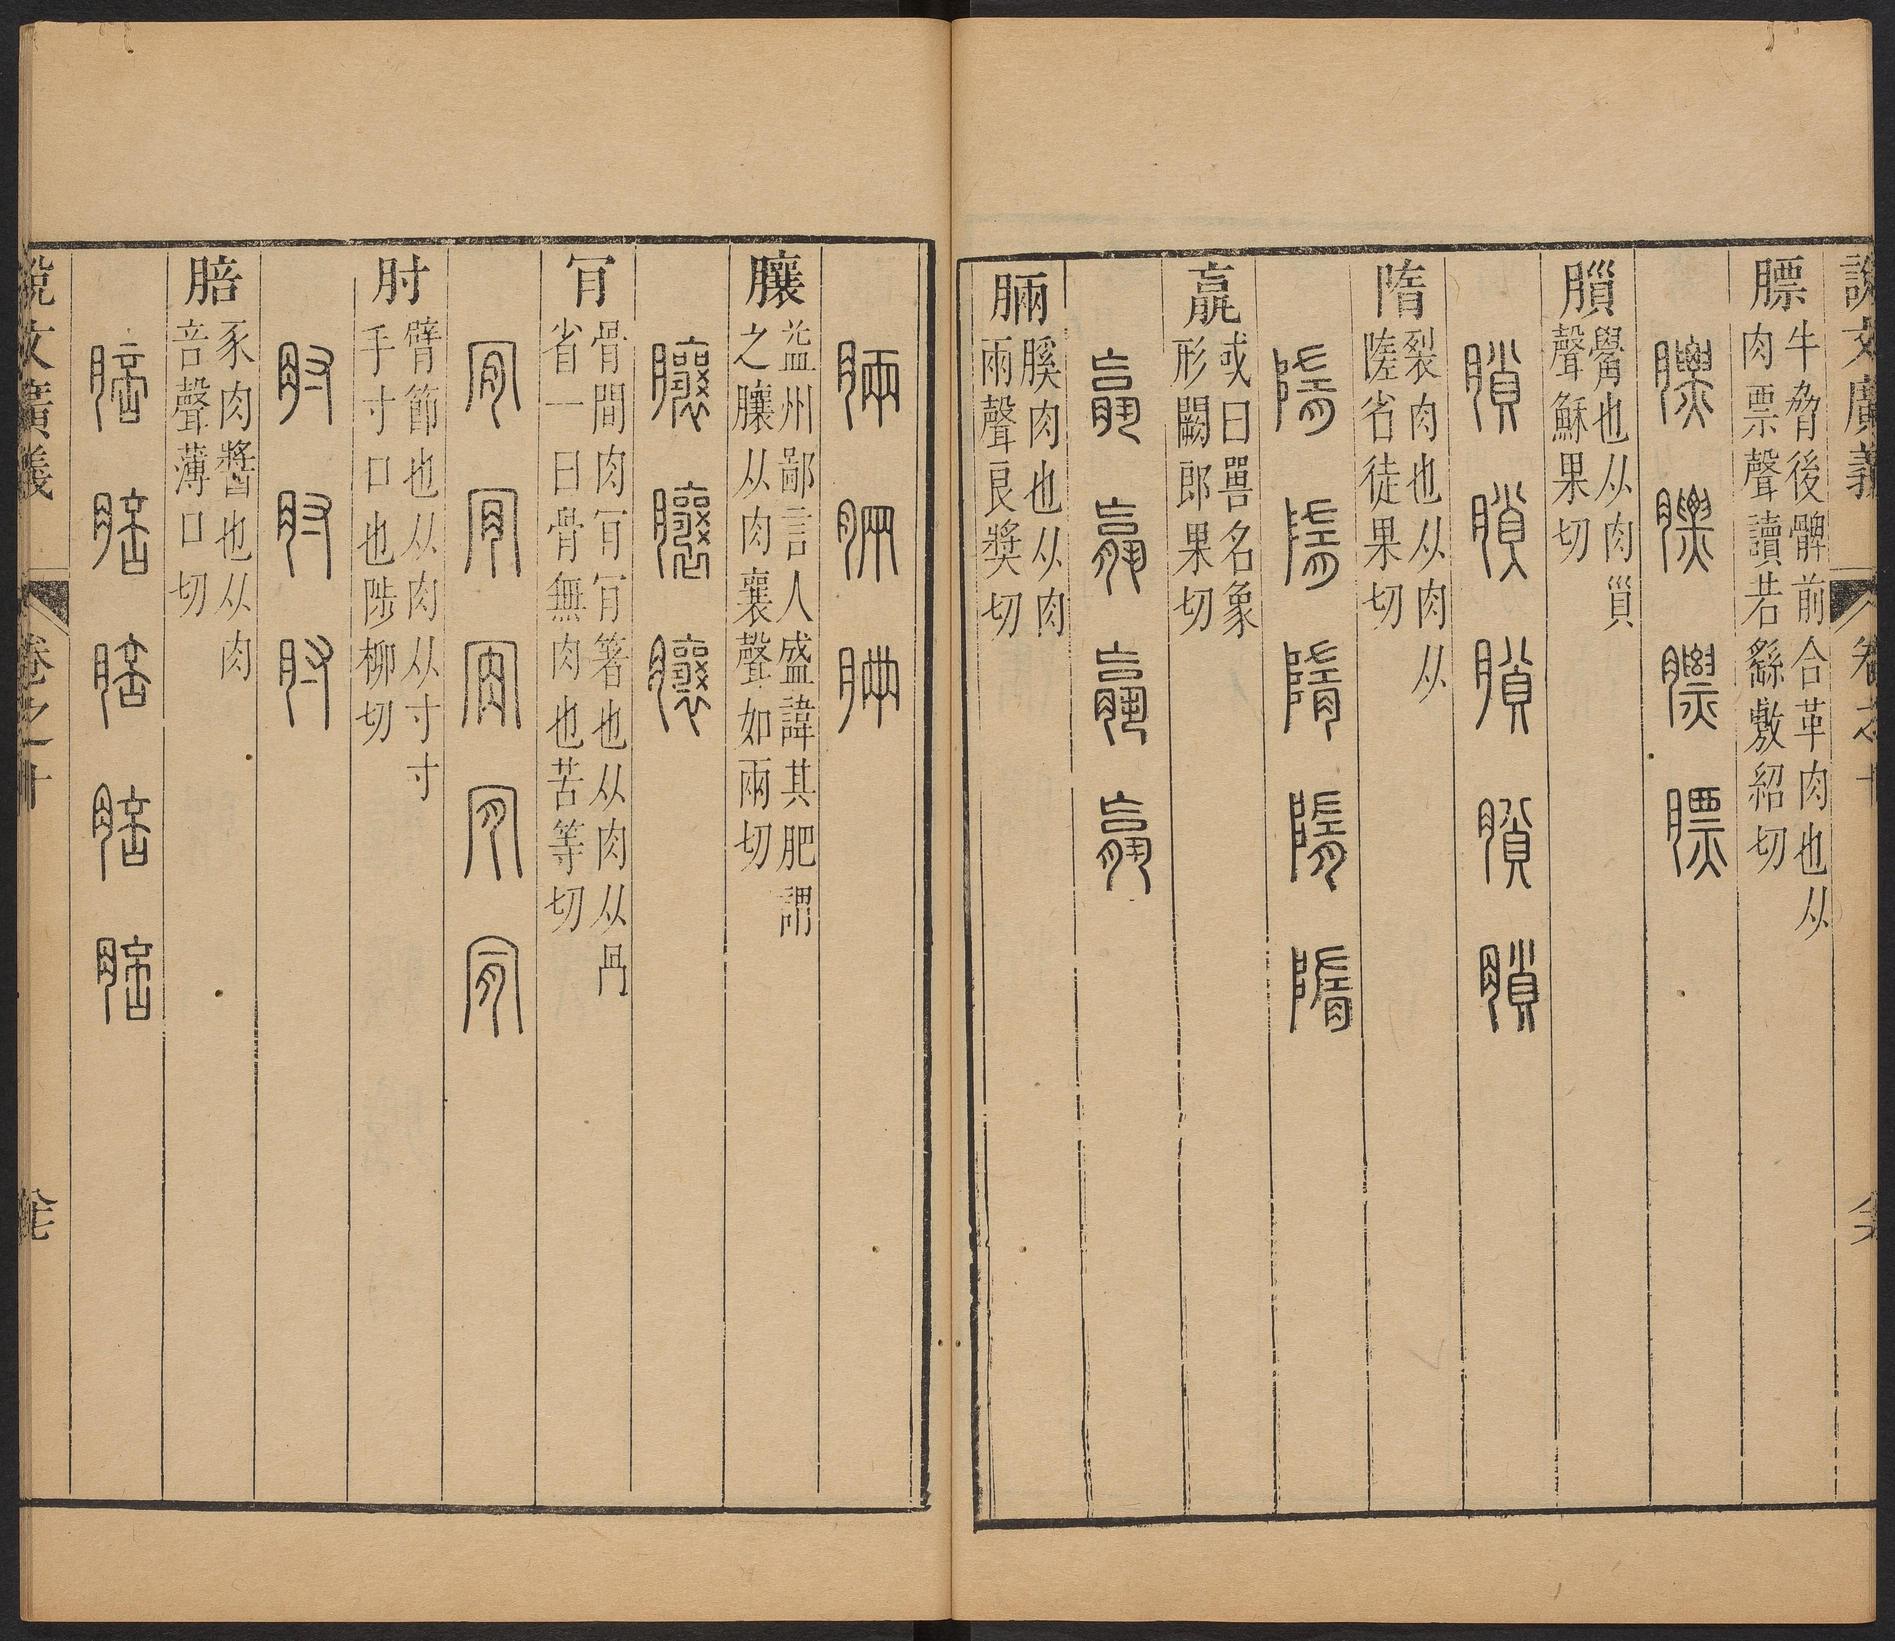 說文廣義 卷之十
膘 牛脅後髀前合革肉也从
肉票聲讀若繇敷紹切
膘膘膘膘
䐝 觜也从肉𧴪
聲穌果切
䐝䐝䐝䐝䐝
隋 裂肉也从肉从
陸省徒果切
隋隋隋隋隋
㒺 或曰嘼名象
形闕郎果切
脼 膎肉也从肉
㒳聲良奬切
脼脼脼
䑋 益州鄙言人盛諱其肥謂
之䑋从肉襄聲如兩切
䑋䑋䑋
肎 骨間肉肎肎箸也从肉从冎
省一曰骨無肉也苦等切
肎肎肎肎肎
肘 臂節也从肉从寸寸
手寸口也陟柳切
肘肘肘
䏽 豕肉醬也从肉
咅聲薄口切
說文廣義 卷之十